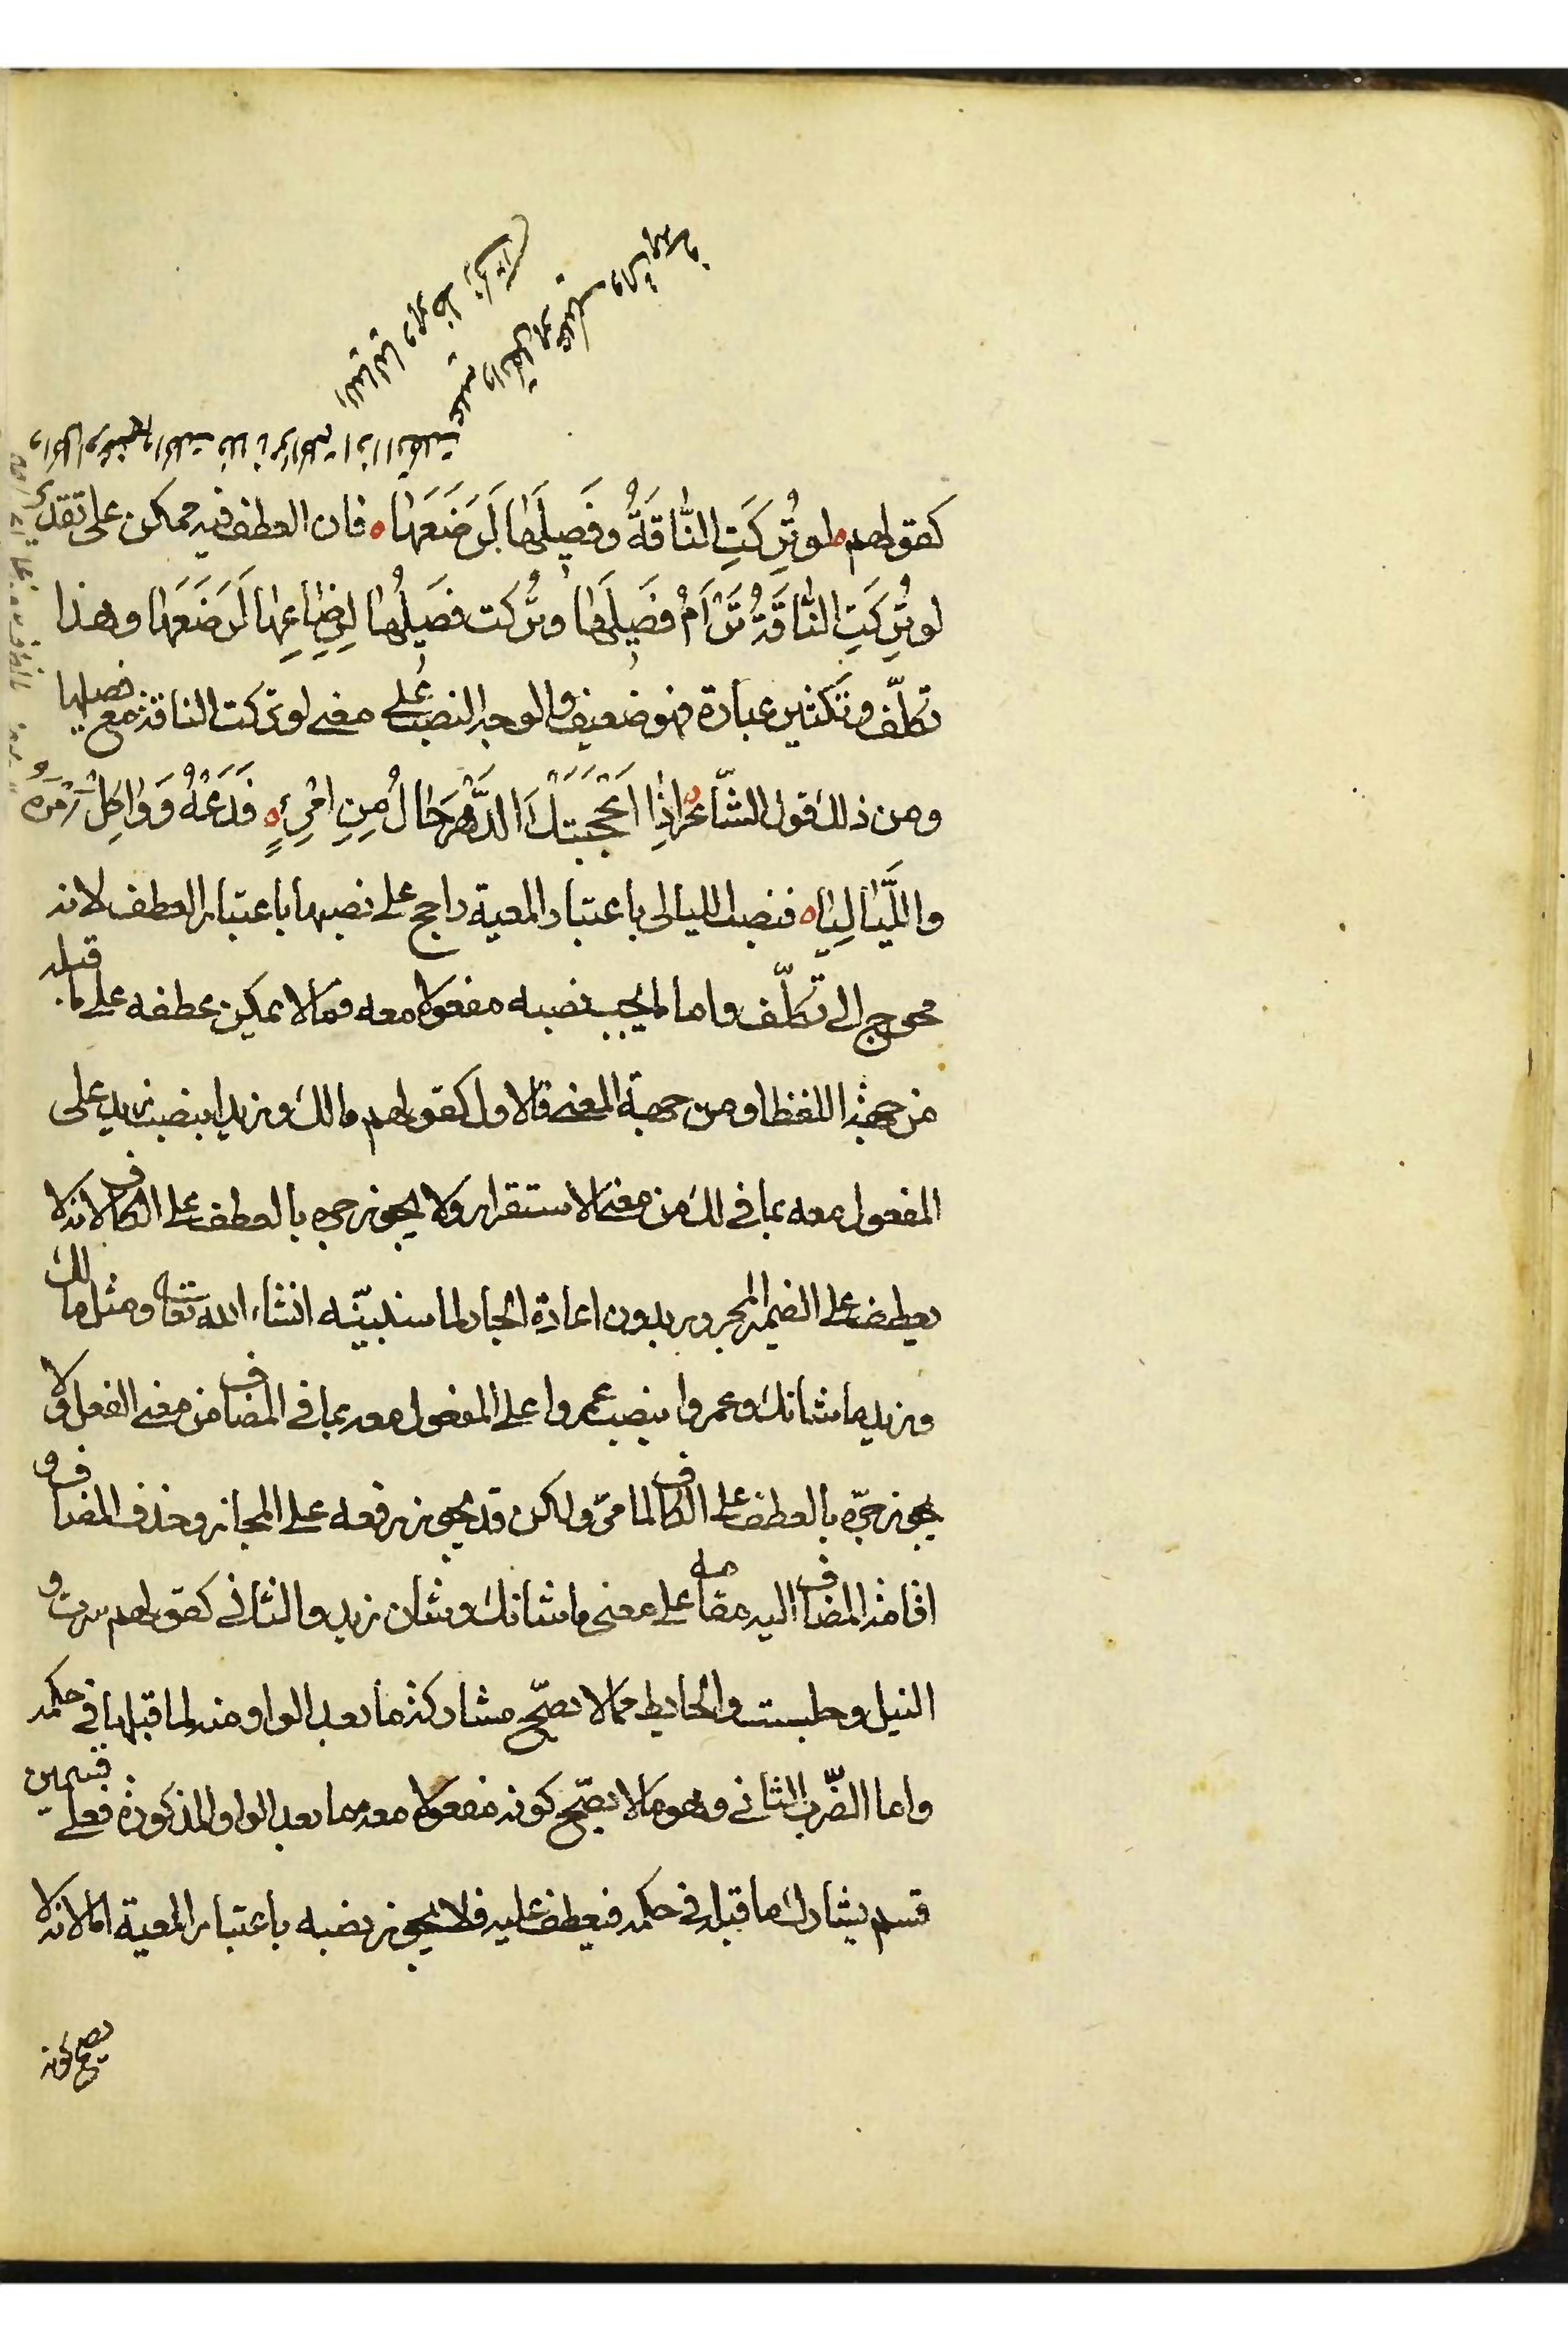 كقولهم لو تُرِكَتِ النَّاقَةُ وفَصِيلَهَا لَرَضَعَهَا فان العطف فيه ممكن على تقدير
لو تُرِكَتِ النَّاقَةُ تَرْأَمُ فَصِيلَهَا وتُركت فصيلُها لِرِضَاعِهَا لَرَضَعَهَا وهذا
تكلّف وتكثير عبارة فهو ضعيف والوجه النصب على معنى لو تركت الناقة مع فصيلها
ومن ذلك قول الشّاعر إذا أعْجَبَتْكَ الدَّهْرَ حَالٌ مِنِ امْرِئٍ فَدَعْهُ وَوَاكِلْ أَمْرَهُ
واللَّيَالِيَا فنصب الليالى باعتبار المعية راجح على نصبها باعتبار العطف لانه
محوج الى تكلّف واما ما يجب نصبه مفعولا معه فمالا يمكن عطفه على ما قبله
من جهة اللفظ او من جهة المعنى فالاول كقولهم مالك وزيدا بنصب زيد على
المفعول معه بما فى لك من معنى الاستقرار ولا يجوز جره بالعطف على الكاف لانه لا
يعطف على الضمير المجرور بدون اعادة الجار لما سنبيّنه انشاء الله تعالى ومثل مالك
وزيد ما شانك وعمروا بنصب عمروا على المفعول معه بما فى المضاف من معنى الفعل ولا
يجوز جرّه بالعطف على الكاف لما مرّ ولكن قد يجوز رفعه على المجاز وحذف المضاف و
اقامة المضاف اليه مقامه على معنى ما شانك وشان زيد والثانى كقولهم سرت و
النيل وجلست والحايط مما لا يصحّ مشاركة ما بعد الواو منه لما قبلها فى حكمه
واما الضّرب الثانى وهو مالا يصحّ كونه مفعولا معه مما بعد الواو المذكورة فعلى قسمين
قسم يشارك ما قبله فى حكمه فيعطف عليه فلا يجوز نصبه باعتبار المعية اما لانه لا
يصح كونه